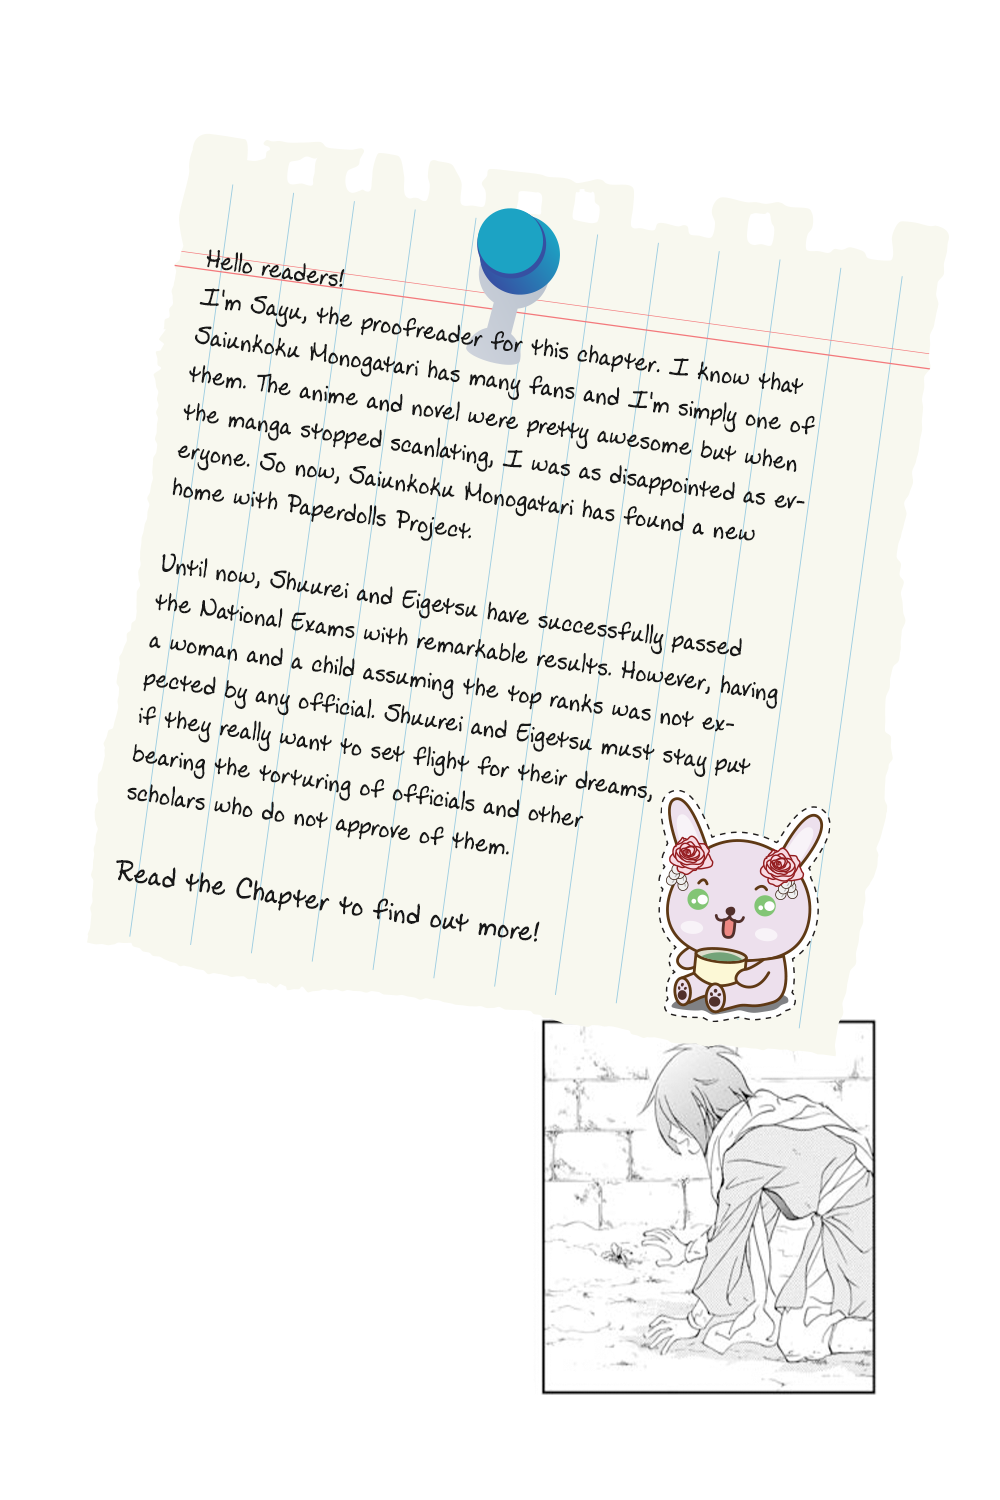 Hello readers!
I'm Sayu, the proofreader for this chapter. I know that
Saiunkoku Monogatari has many fans and I'm simply one of
them. The anime and novel were pretty awesome but when
the manga stopped scanlating, I was as disappointed as ev-
eryone. So now, Saiunkoku Monogatari has found a new
home with Paperdolls Project.
Until now, Shuurei and Eigetsu have successfully passed
the National Exams with remarkable results. However, having
a woman and a child assuming the top ranks was not ex-
pected by any official. Shuurei and Eigetsu must stay put
if they really want to set flight for their dreams,
bearing the torturing of officials and other
scholars who do not approve of them.
Read the Chapter to find out more!